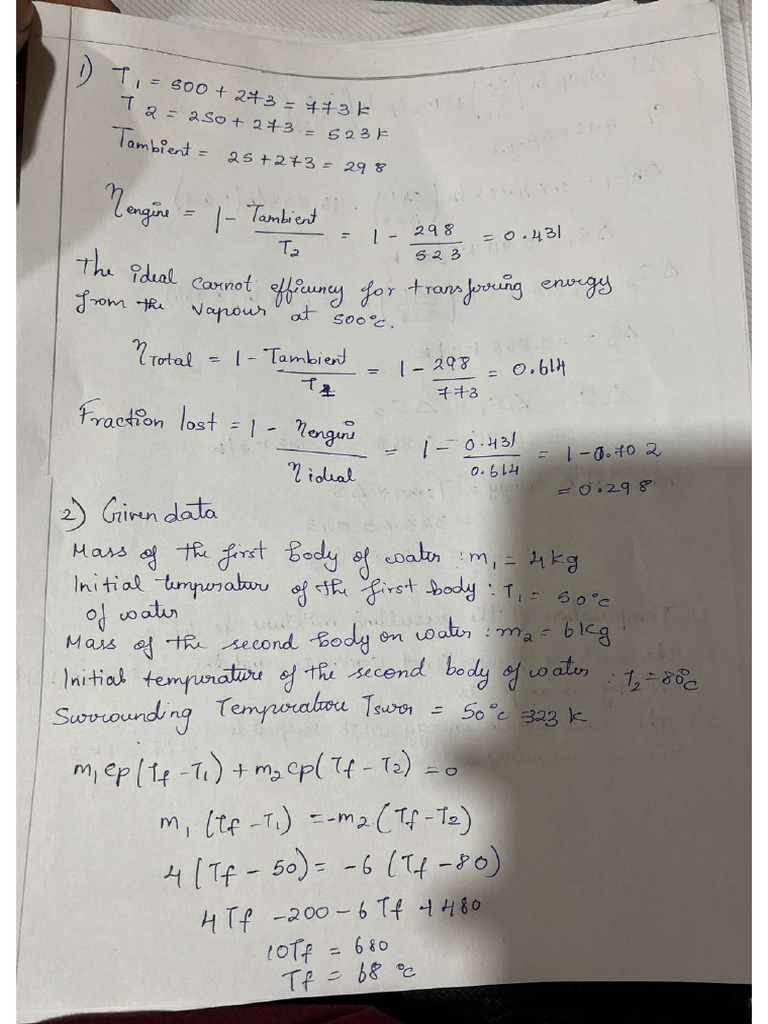 1) T1 = 500 + 273 = 773k
T2 = 250 + 273 = 523k
Tambient = 25+273 = 298
ηengine = 1 - Tambient/T2 = 1 - 298/523 = 0.431
The ideal carnot efficuncy for transfurring enurgy
from the vapour at 500°c.
ηTotal = 1 - Tambient/T1 = 1 - 298/773 = 0.614
Fraction lost = 1 - ηengine/ηideal = 1 - 0.431/0.614 = 1-0.702
= 0.298
2) Given data
Mass of the first body of water : m1 = 4kg
Initial temperature of the first body : T1 = 50°c
of water
Mass of the second body on water : m2 = 6kg
Initial temperature of the second body of water : T2 = 80°c
Surrounding Temperature Tsurr = 50°c = 323 k
m1cp(Tf-T1) + m2cp(Tf-T2) = 0
m1 (Tf-T1) = -m2(Tf-T2)
4(Tf - 50) = -6 (Tf-80)
4Tf - 200 - 6Tf + 480
10Tf = 680
Tf = 68 °c